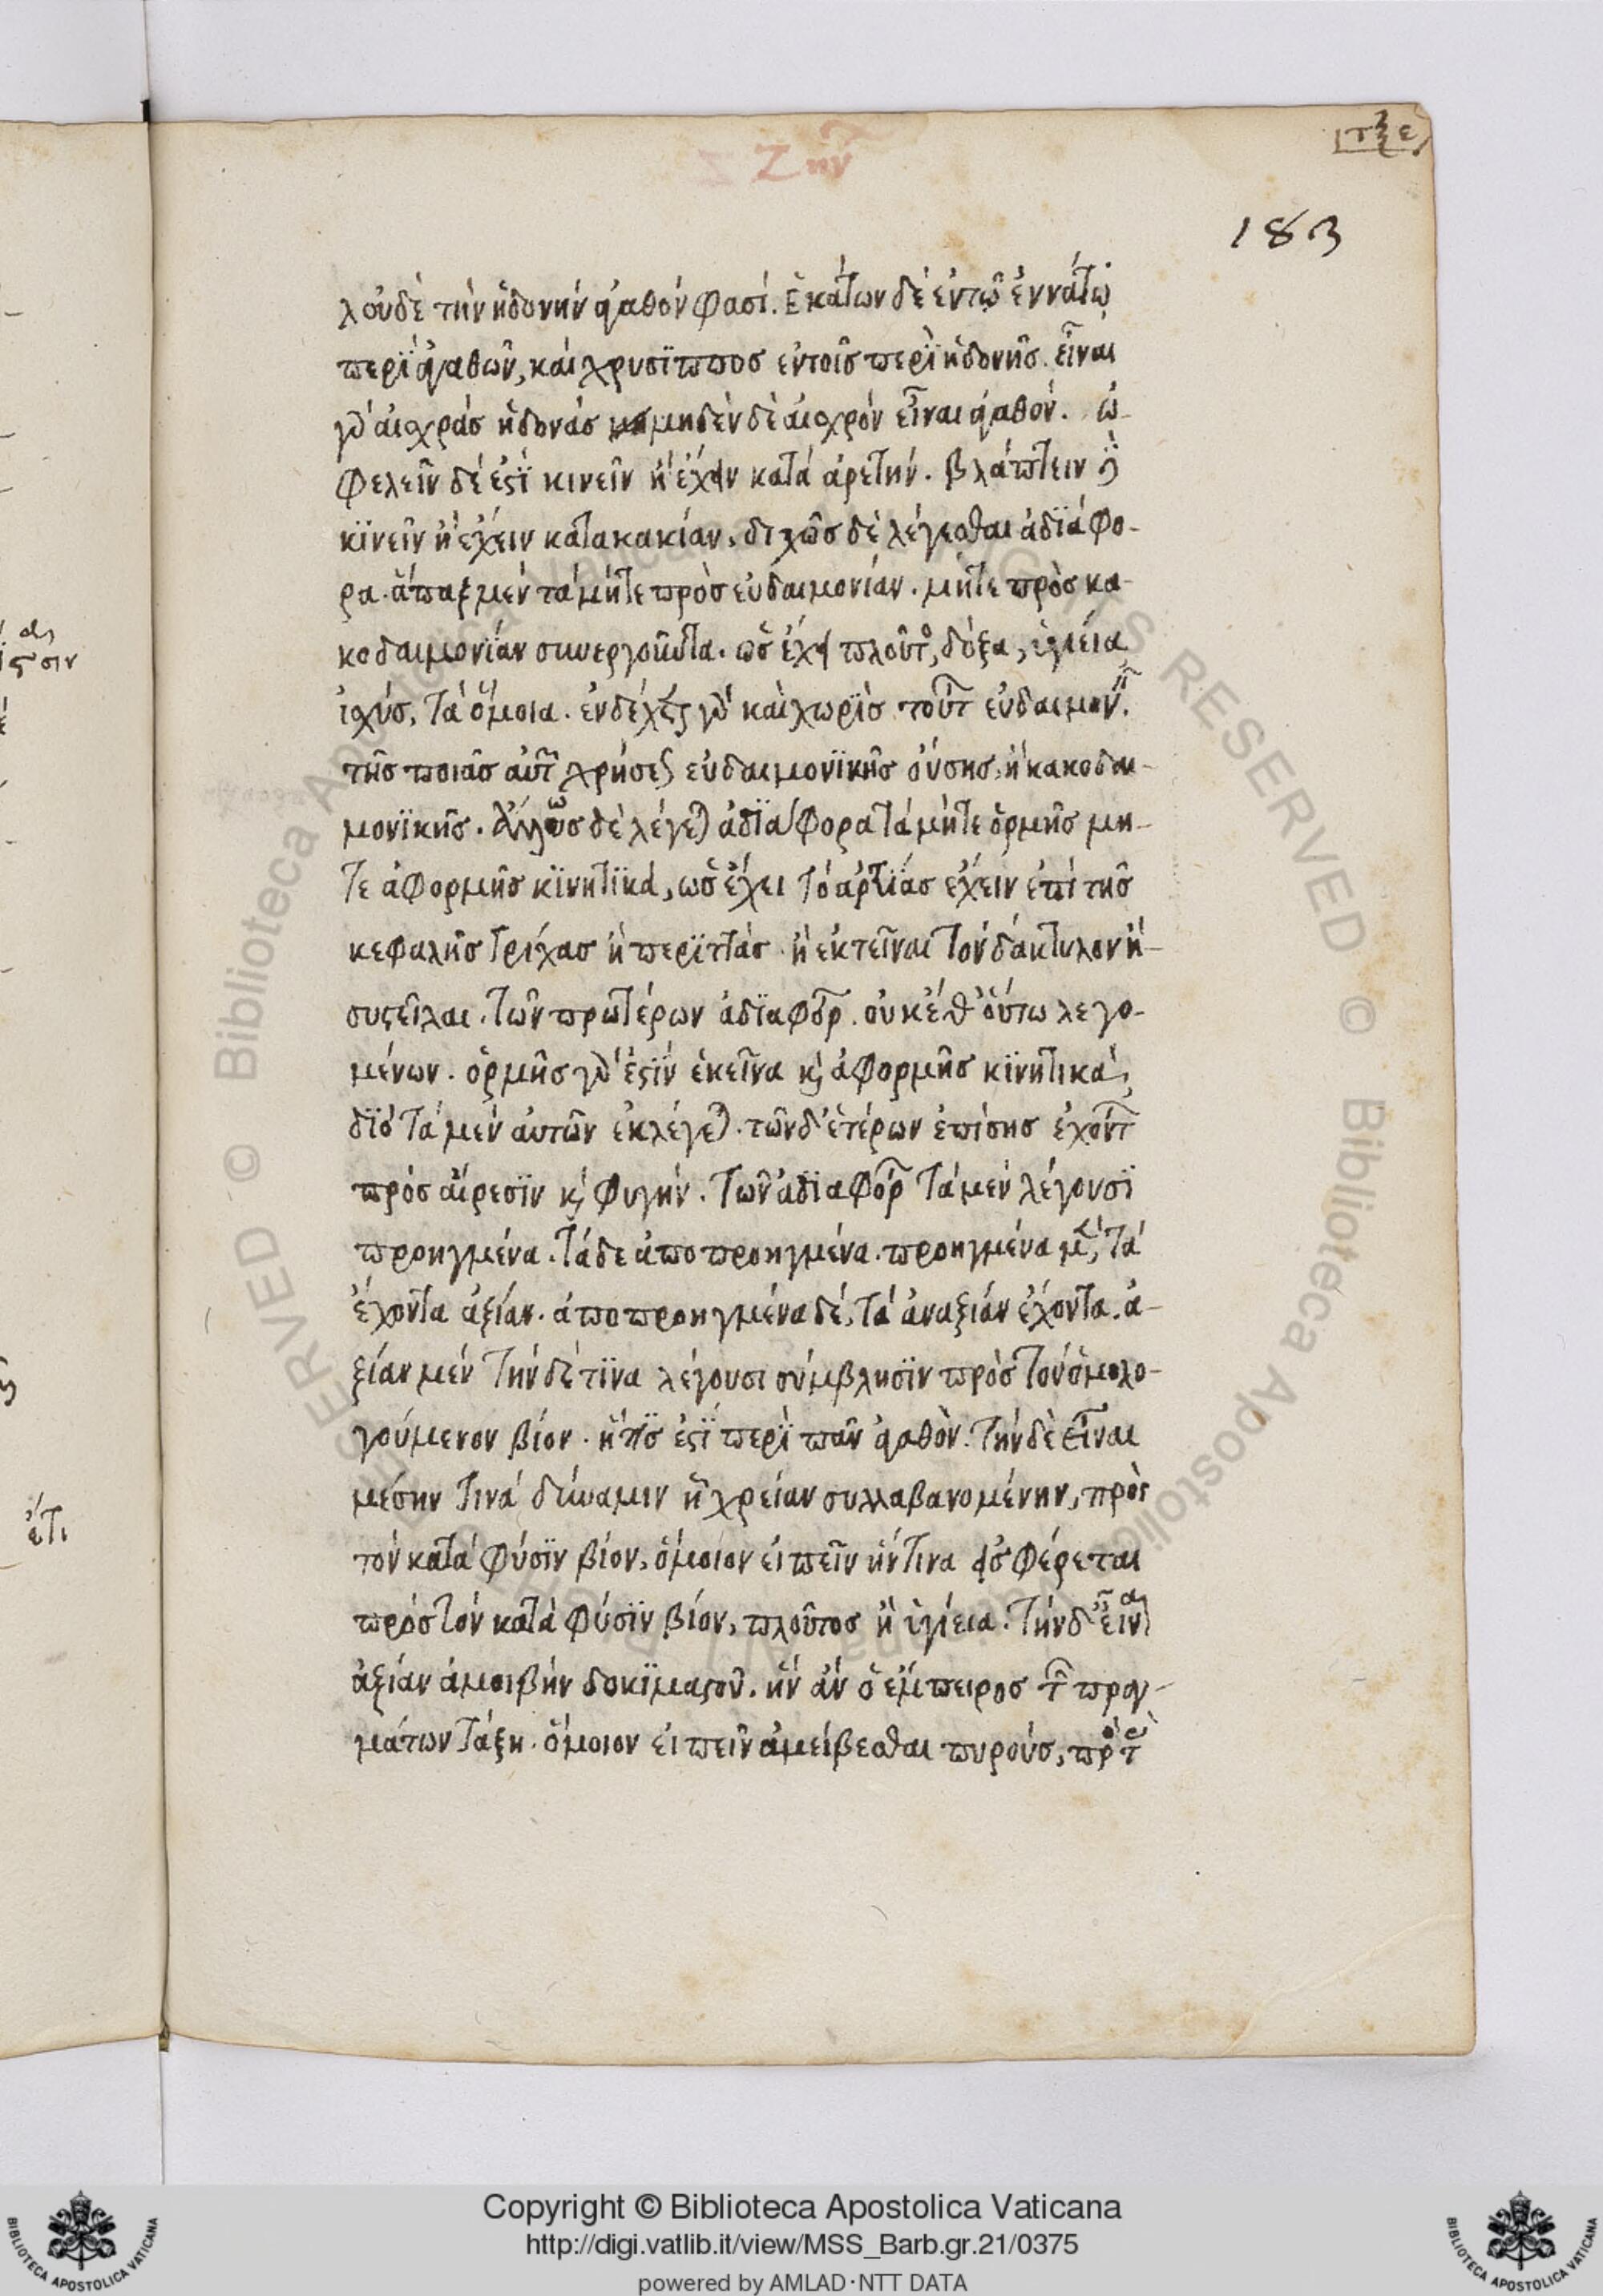 Ζ Ζην
τξε
183
λ οὐδὲ τὴν ἡδονὴν ἀγαθόν φασί. Ἑκάτων δὲ ἐν τῷ ἐννάτῳ
περὶ ἀγαθῶν, καὶ χρυσίππος ἐν τοῖς περὶ ἡδονῆς. εἶναι
γὰρ αἰσχρὰς ἡδονάς μηδὲν δὲ αἰσχρόν εἶναι ἀγαθόν. ὠ-
φελεῖν δέ ἐστὶ κινεῖν ἢ ἔχειν κατὰ ἀρετήν. βλάπτειν δὲ
κινεῖν ἢ ἔχειν κατα κακίαν. διχῶς δὲ λέγεσθαι ἀδιάφο-
ρα. ἅπαξ μὲν τὰ μήτε πρὸς εὐδαιμονίαν. μήτε πρὸς κα-
κοδαιμονίαν συνεργοῦντα. ὡς ἔχει πλοῦτος, δόξα, ὑγιεία,
ἰσχύς, τὰ ὅμοια. ἐνδέχεται γὰρ καὶ χωρὶς τούτων εὐδαιμονεῖν.
τῆς ποιᾶς αὐτῶν χρήσεως εὐδαιμονικῆς οὔσης, ἢ κακοδαι-
μονικῆς. Ἄλλως δὲ λέγεται ἀδιάφορα τὰ μήτε ὁρμῆς μή-
τε ἀφορμῆς κινητικά, ὡς ἔχει τὸ ἀρτίας ἔχειν ἐπὶ τῆς
κεφαλῆς τρίχας ἢ περιττάς. ἢ ἐκτεῖναι τὸν δάκτυλον ἢ-
συστεῖλαι. τῶν προτέρων ἀδιαφόρων. οὐκέθ' οὕτω λεγο-
μένων. ὁρμῆς γάρ ἐστὶν ἐκεῖνα καὶ ἀφορμῆς κινητικά,
διὸ τὰ μὲν αὐτῶν ἐκλέγεται. τῶν δ' ἑτέρων ἐπίσης ἐχόντων
πρὸς αἵρεσιν καὶ φυγήν. Τῶν ἀδιαφόρων τὰ μὲν λέγουσι
προηγμένα. τὰ δε ἀποπροηγμένα. προηγμένα μὲν, τὰ
ἔχοντα ἀξίαν. ἀποπροηγμένα δέ, τὰ ἀναξίαν ἔχοντα. ἀ-
ξίαν μέν τὴν δέ τινα λέγουσι σύμβλησιν πρὸς τοὺς ὁμολο-
γούμενον βίον. ἥτις ἐστὶ περὶ πᾶν ἀγαθὸν. τὴν δὲ εἶναι
μέσην τινὰ δύναμιν ἢ χρείαν συλλαβανομένην, πρὸς
τὸν κατὰ φύσιν βίον, ὅμοιον εἰπεῖν ἥντινα εἰσφέρεται
πρὸς τὸν κατὰ φύσιν βίον, πλοῦτος ἢ ὑγίεια. τὴν δ' εἶναι
ἀξίαν ἀμοιβὴν δοκιμαστοῦ. ἣν ἂν ὁ ἔμπειρος τῶν πραγ-
μάτων τάξη. ὅμοιον εἰπεῖν ἀμείβεσθαι πυρούς, πρὸς τὰς
Copyright © Biblioteca Apostolica Vaticana
http://digi.vatlib.it/view/MSS_Barb.gr.21/0375
powered by AMLAD·NTT DATA